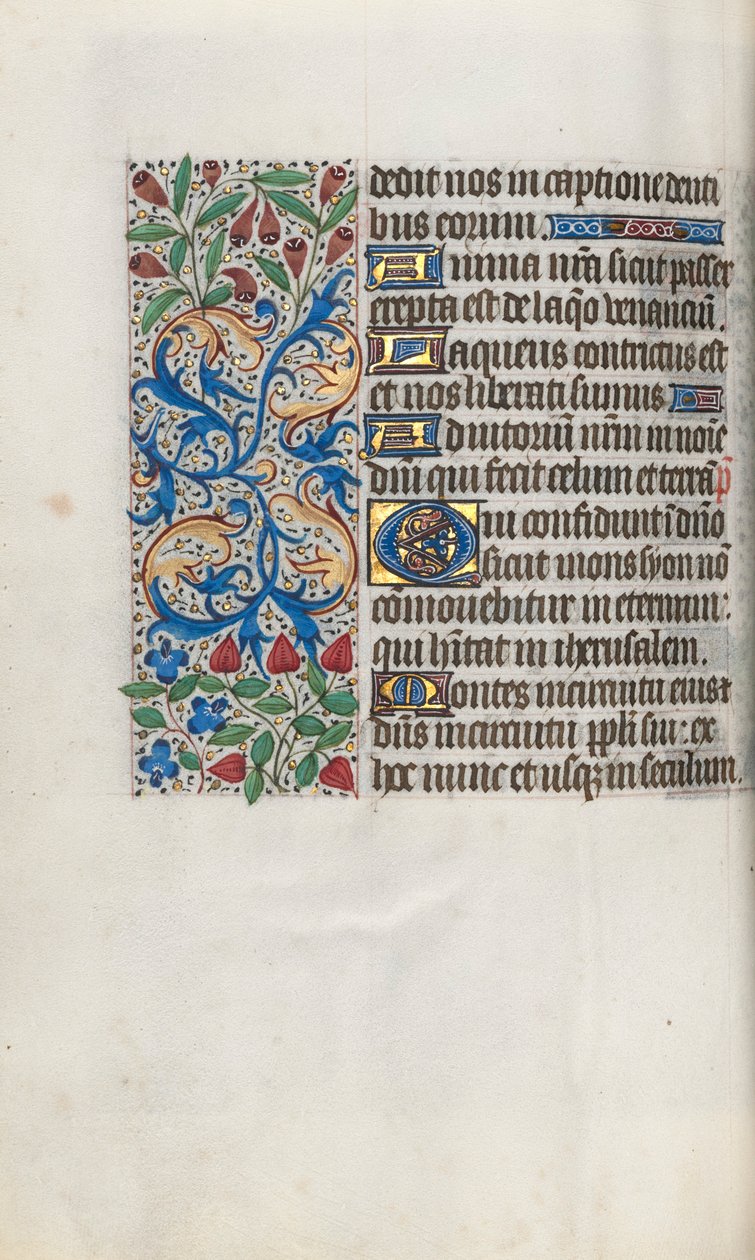 dedit nos in captione denti
bus eorum.
Anima nr̄a sicut passer
erepta est de laq̄o venanciū.
Laqueus contrictus est
et nos liberati sumus
Adiutoriū nr̄m in noīe
dn̄i qui fecit celum et terrā p̄
Qui confidunt ī dn̄o
sicut mons syon nō
cōmovebitur in eternum:
qui h̄itat in iherusalem.
Montes in circuitu eius ⁊
dn̄s in circuitu pp̄li sui: ex
hoc nunc et usqꝫ in seculum.